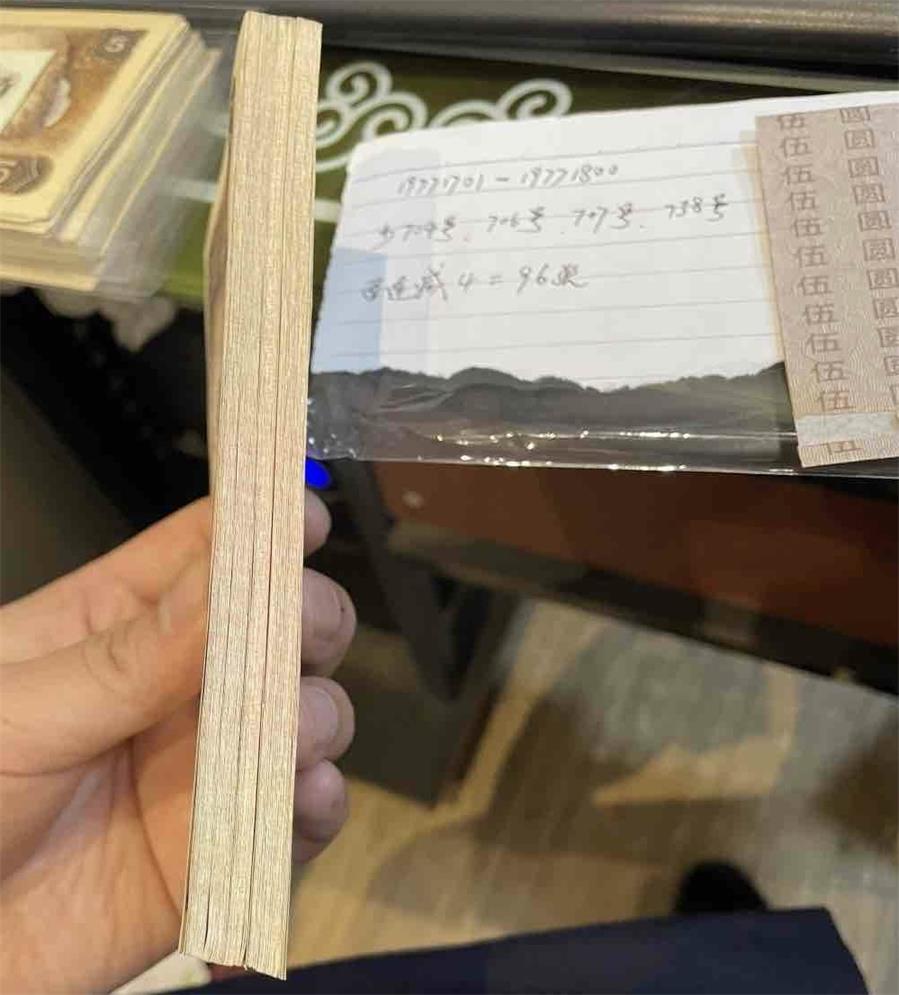 5
5
19771701-19771800
少704号、706号、707号、738号
连减4=96
伍 圆
伍 圆
伍 圆
伍 圆
伍 圆
伍 圆
伍 圆
伍 圆
伍 圆
伍 圆
伍
伍